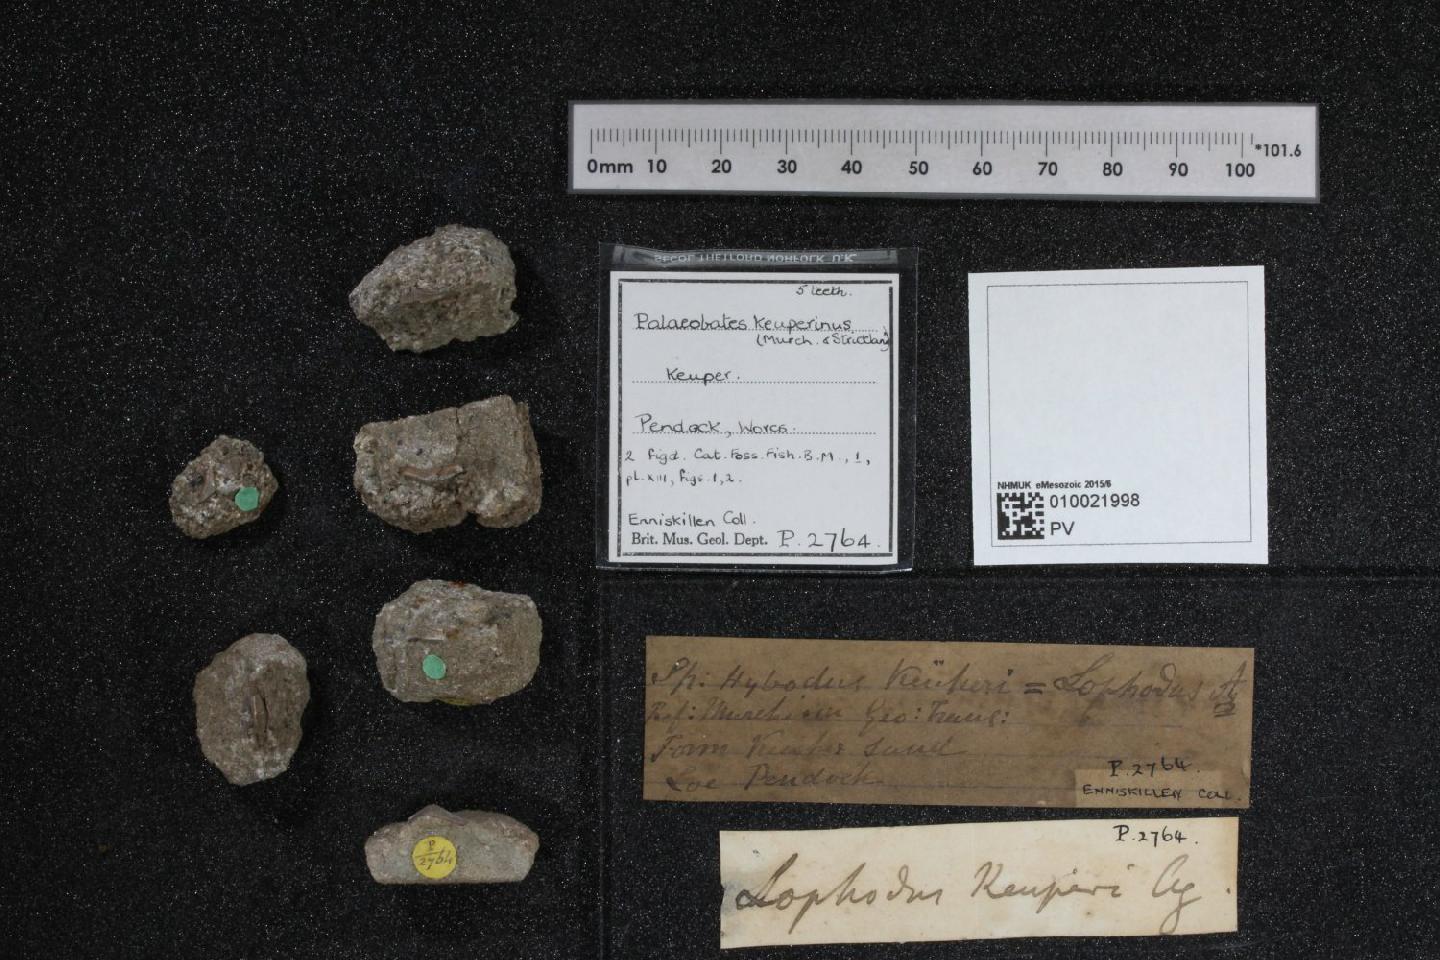 0mm 10 20 30 40 50 60 70 80 90 100
*101.6
5 teeth.
Palaeobates keuperinus
(Murch. & Strickland)
Keuper.
Pendock, Worcs.
2 figd. Cat. Foss. Fish. B.M., 1,
pl. XIII, figs. 1, 2.
Enniskillen Coll.
Brit. Mus. Geol. Dept. P. 2764.
NHMUK eMesozoic 2015/6
010021998
PV
Sp: Hybodus Keüperi = Lophodus Ag
Ref: Murch: in Geo: Trans:
Form Keuper Sand
Loc Pendock
P. 2764.
ENNISKILLEN COLL.
P. 2764.
Lophodus Keuperi Ag.
P
2764